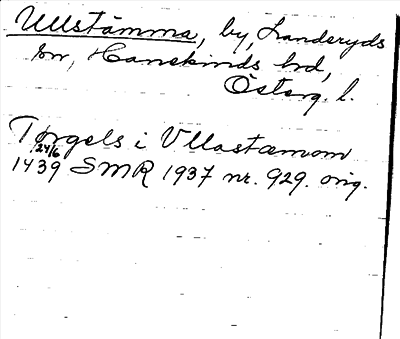 Ullstämma, by, Landeryds
sn, Hanekinds hd,
Österg. l.
Torgels i Vllastæmom
24/6
1439 SMR 1937 nr. 929. orig.